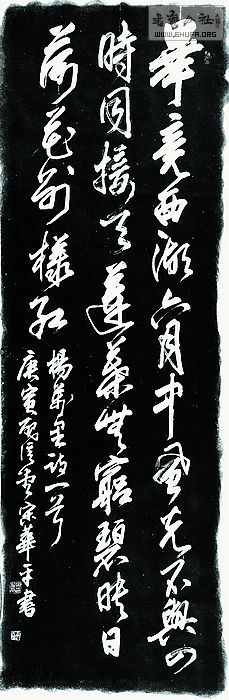 WWW.SHUFA.ORG
畢竟西湖六月中風光不與四
時同接天蓮葉無窮碧映日
荷花別樣紅
楊萬里詩一首
庚寅宋華平書